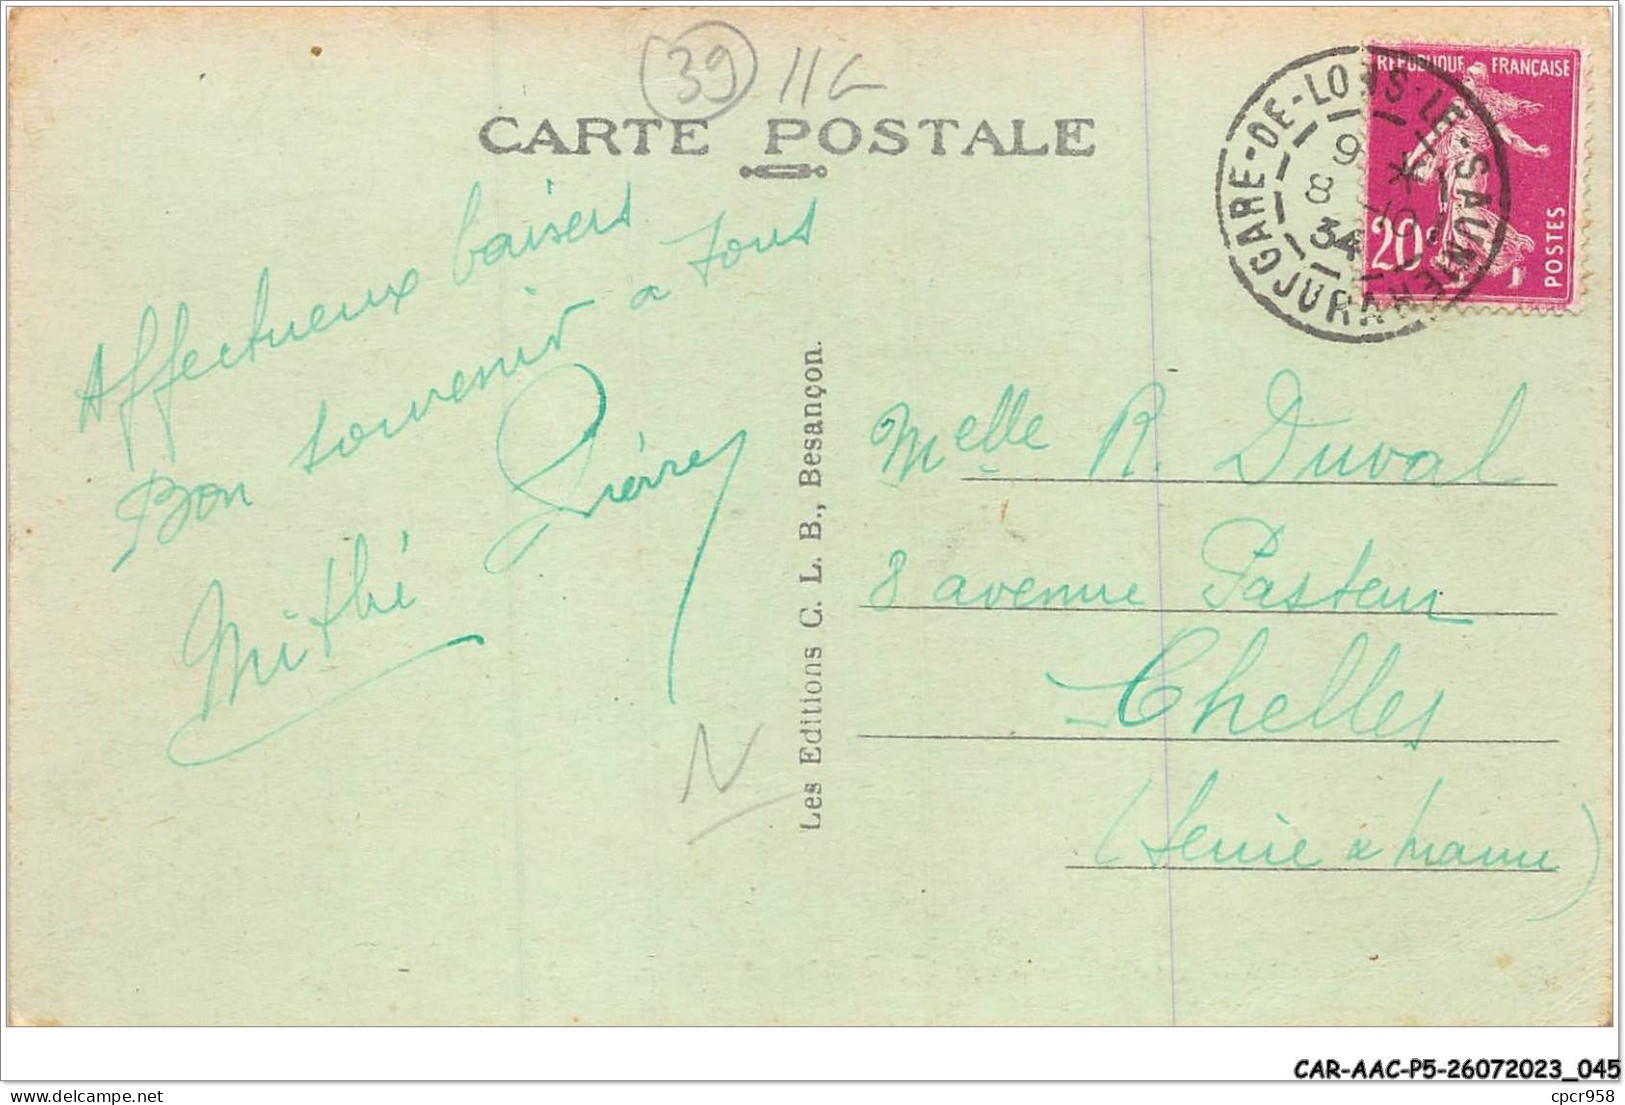 39 11G
CARTE POSTALE
RÉPUBLIQUE FRANÇAISE
20c
POSTES
GARE-DE-LONS-LE-SAUNIER
9 *
8 -10
34
JURA
Affectueux baisers
Bon souvenir a tous
Pierre
Mithé
N
Les Editions C. L. B., Besançon.
Melle R. Duval
8 avenue Pasteur
Chelles
(Seine & Marne)
CAR-AAC-P5-26072023_045
delcampe.net
cpcr958